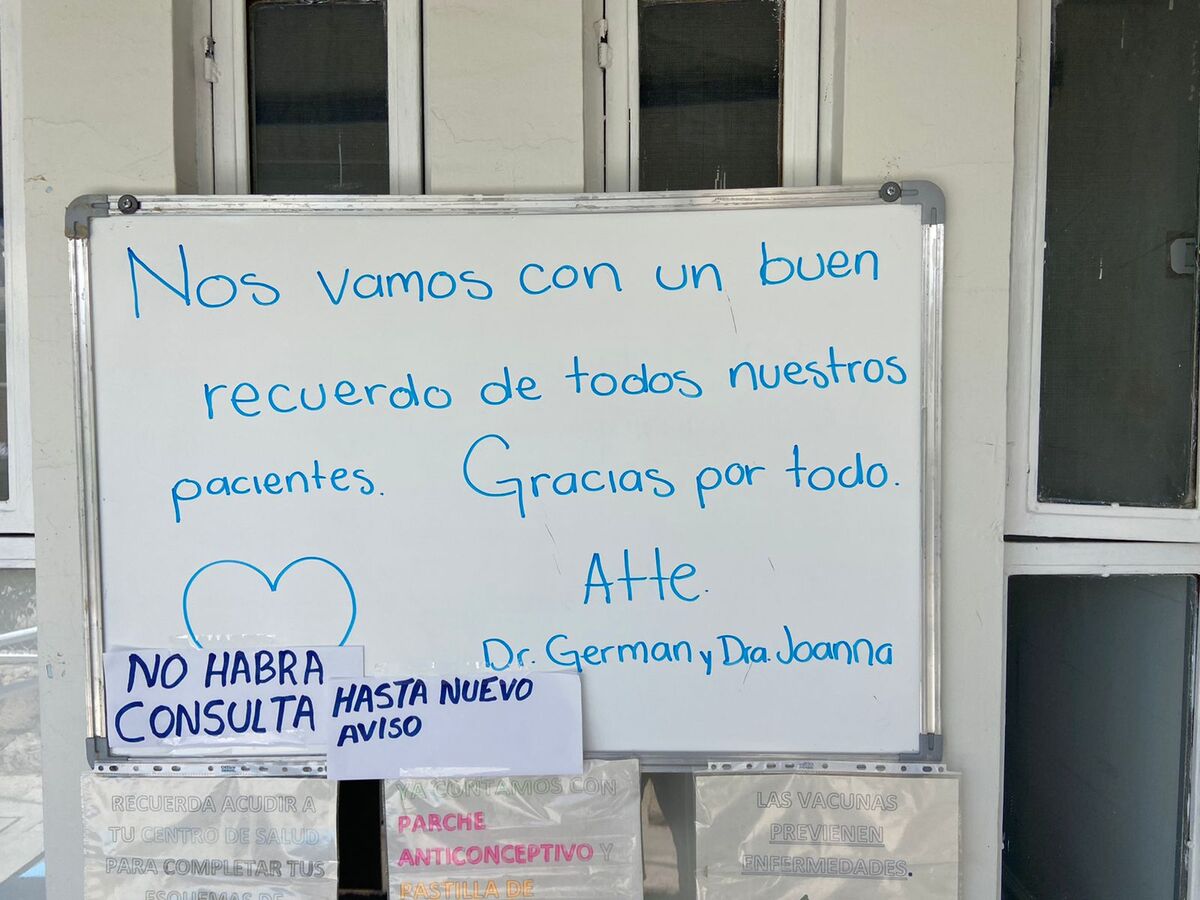 Nos vamos con un buen
recuerdo de todos nuestros
pacientes. Gracias por todo.
Atte.
Dr. German y Dra. Joanna
NO HABRA
CONSULTA
HASTA NUEVO
AVISO
RECUERDA ACUDIR A
TU CENTRO DE SALUD
PARA COMPLETAR TUS
ESQUEMAS DE
YA CONTAMOS CON
PARCHE
ANTICONCEPTIVO Y
PASTILLA DE
LAS VACUNAS
PREVIENEN
ENFERMEDADES.